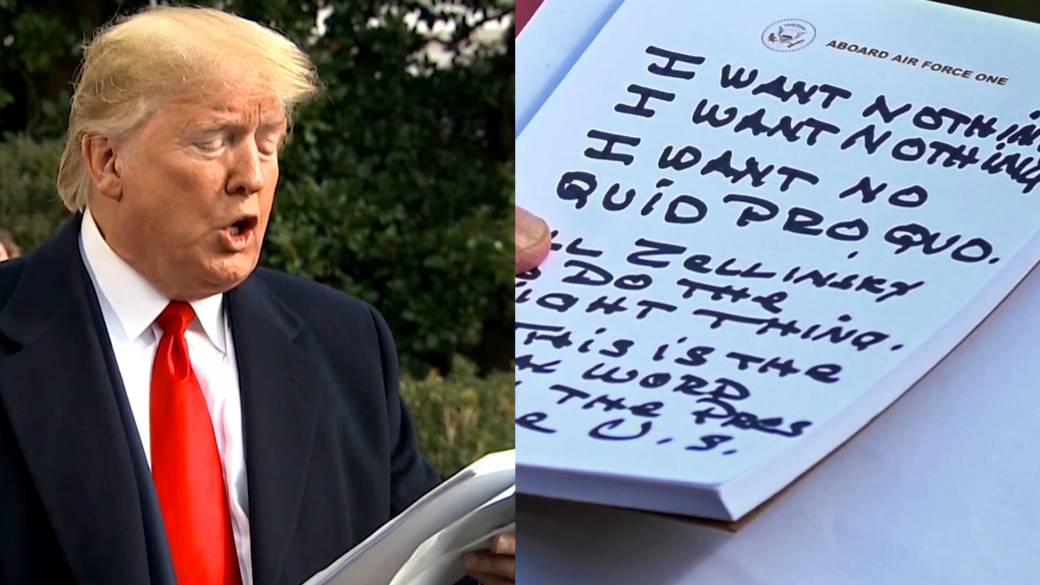 ABOARD AIR FORCE ONE
I WANT NOTHIN
I WANT NOTHING
I WANT NO
QUID PRO QUO.
LL ZELLINSKY
DO THE
IGHT THING.
THIS IS THE
AL WORD
THE PRES
E U.S.